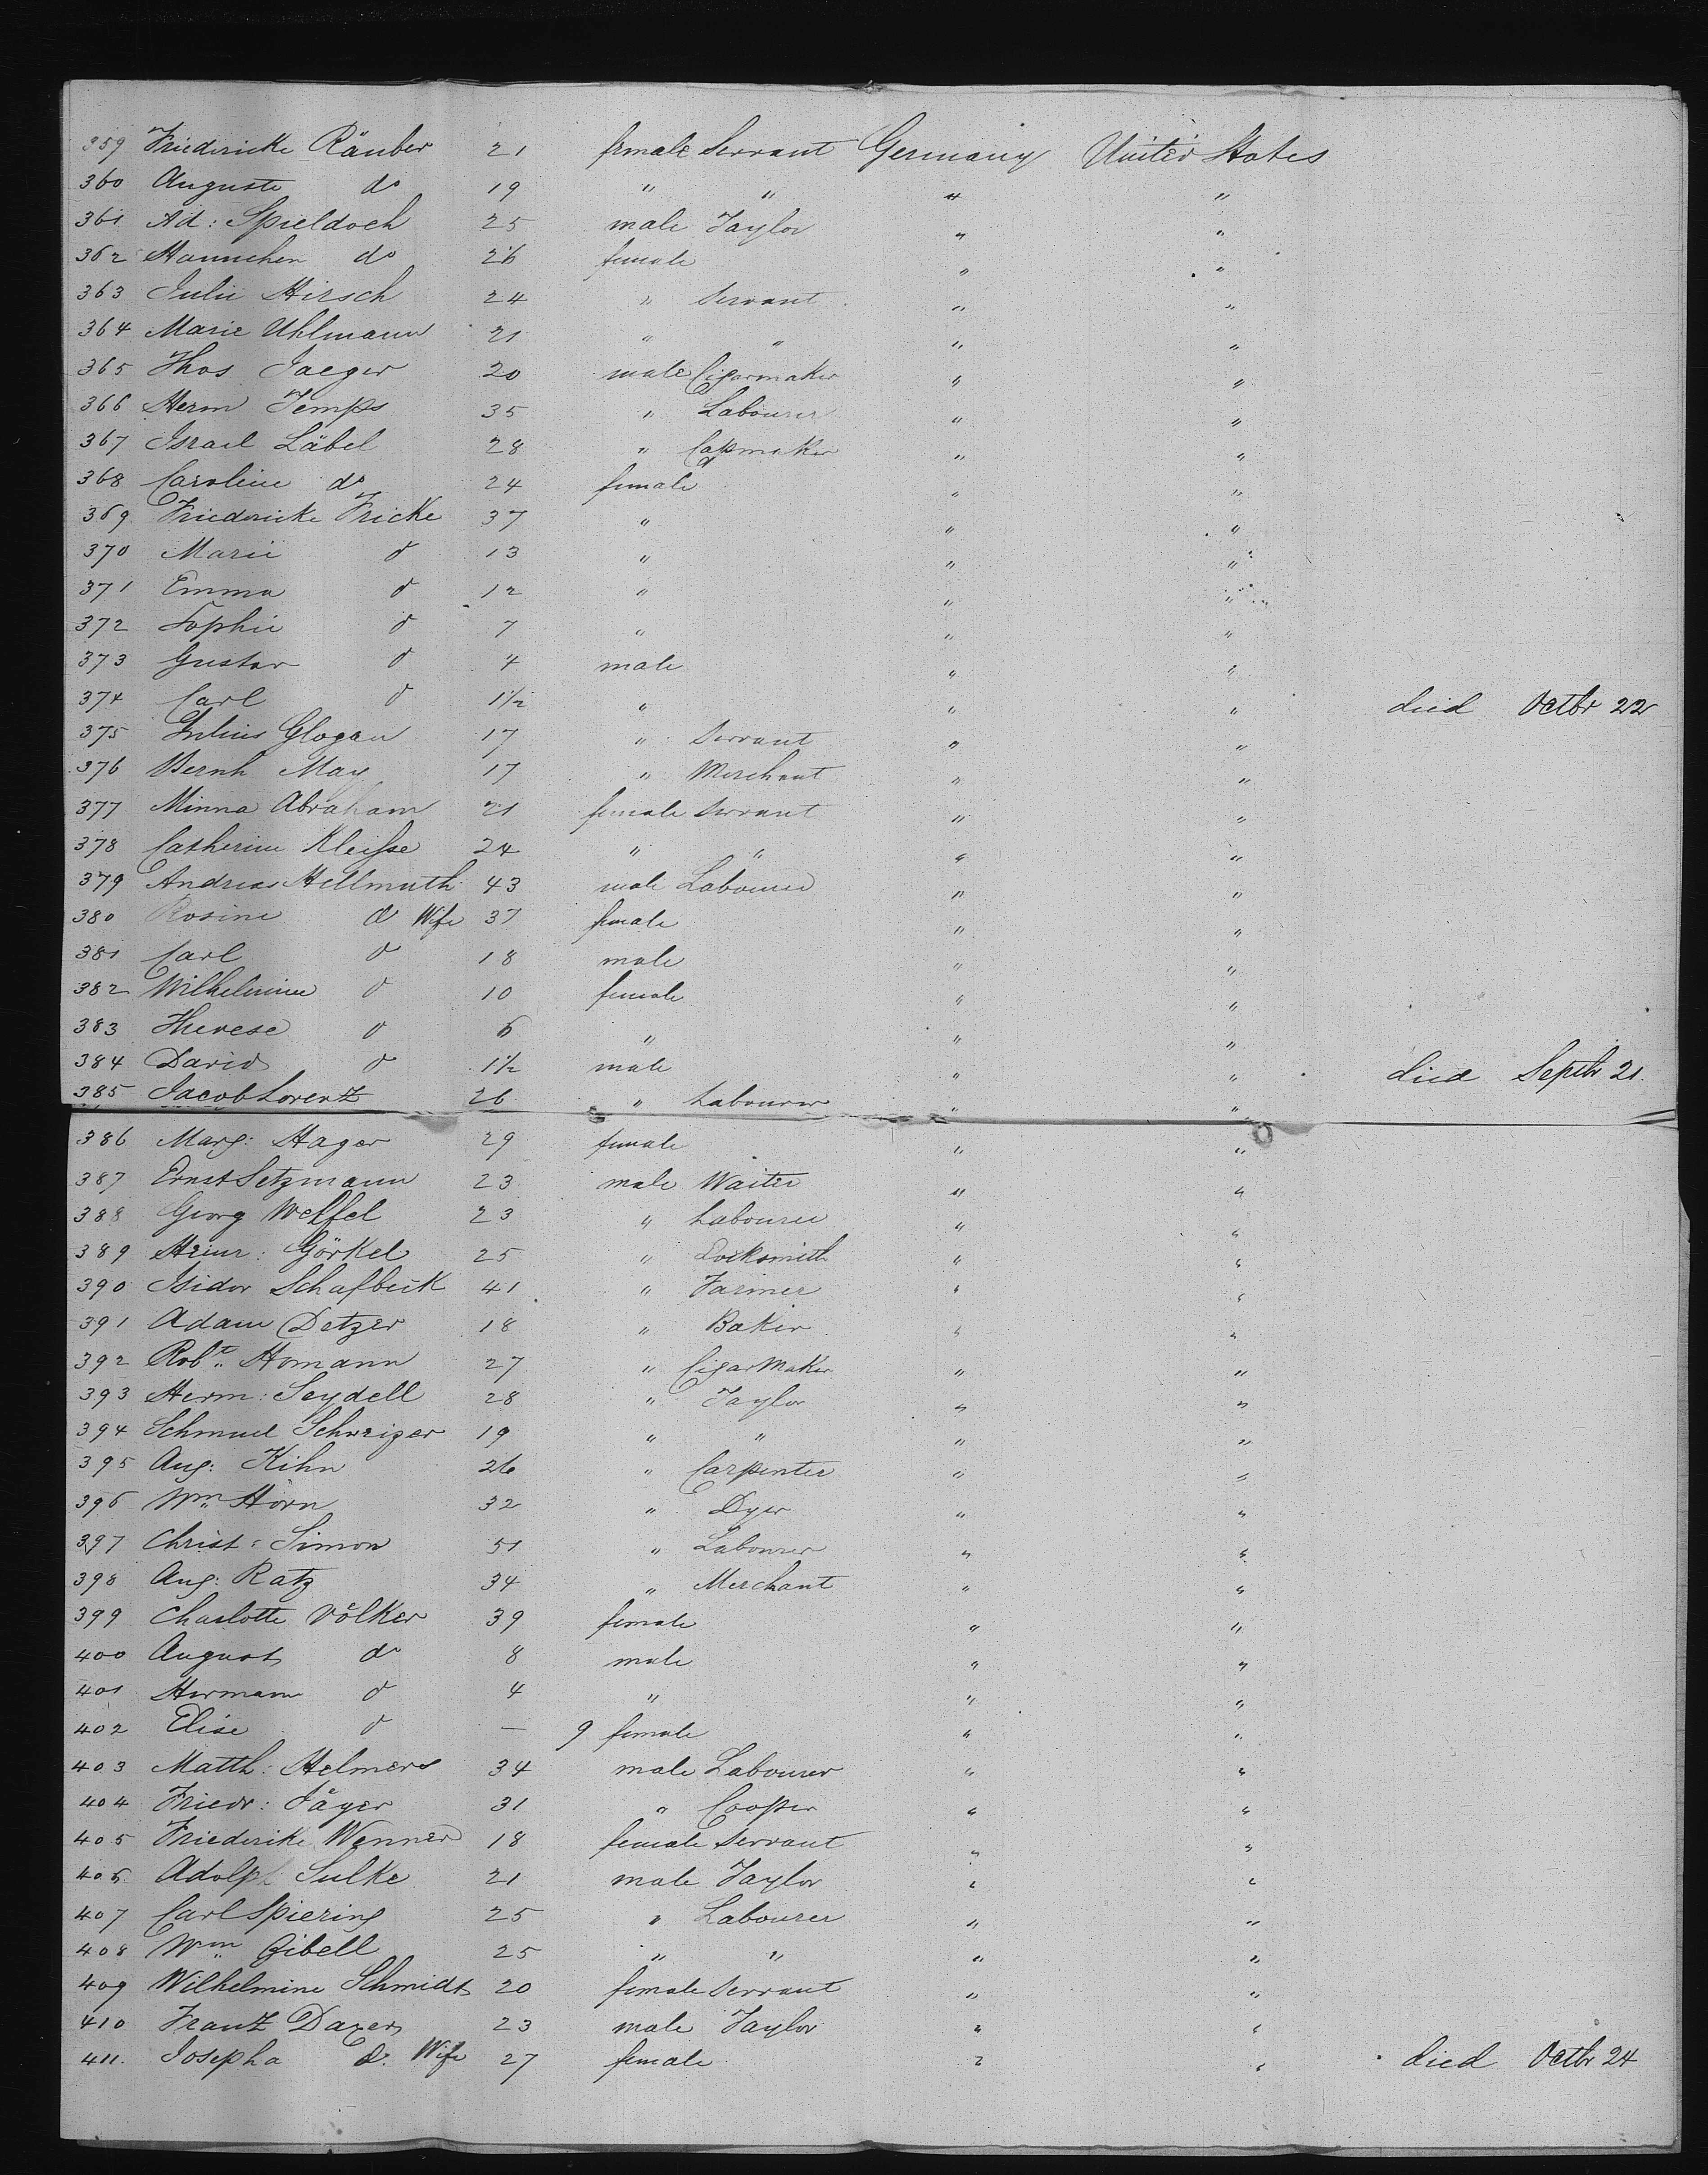 359 Friedericke Räuber 21 female Servant Germany United States
360 Auguste do 19 " " " "
361 Ad: Spieldoch 25 male Taylor " "
362 Hannchen do 26 female " "
363 Julie Hirsch 24 " Servant " "
364 Marie Uhlmann 21 " " " "
365 Thos Jaeger 20 male Cigarmaker " "
366 Herm Temps 35 " Labourer " "
367 Israel Läbel 28 " Capmaker " "
368 Caroline do 24 female " "
369 Friedericke Fricke 37 " " "
370 Marie d 13 " " "
371 Emma d 12 " " "
372 Sophie d 7 " " "
373 Gustav d 4 male " "
374 Carl d 1½ " " " died Octbr 22
375 Julius Glogau 17 " Servant " "
376 Bernh May 17 " Merchant " "
377 Minna Abraham 21 female Servant " "
378 Catherine Kleisse 24 " " " "
379 Andreas Hellmuth 43 male Labourer " "
380 Rosine d Wife 37 female " "
381 Carl d 18 male " "
382 Wilhelmine d 10 female " "
383 Therese d 6 " " "
384 David d 1½ male " " died Septbr 21.
385 Jacob Lorentz 26 " Labourer " "
386 Marg: Hager 29 female " "
387 Ernst Setzmann 23 male Waiter " "
388 Georg Welfel 23 " Labourer " "
389 Heinr: Görkel 25 " Locksmith " "
390 Isidor Schafbuck 41 " Farmer " "
391 Adam Detzer 18 " Baker " "
392 Robt. Homann 27 " CigarMaker " "
393 Herm: Seydell 28 " Taylor " "
394 Schmuel Schweizer 19 " " " "
395 Aug: Kihn 26 " Carpenter " "
396 Wm. Horn 32 " Dyer " "
397 Christ: Simon 51 " Labourer " "
398 Aug: Ratz 34 " Merchant " "
399 Charlotte Völker 39 female " "
400 August do 8 male " "
401 Hermann d 4 " " "
402 Elise d — 9 female " "
403 Matth: Helmers 34 male Labourer " "
404 Friedr: Jäger 31 " Cooper " "
405 Friederike Wenner 18 female Servant " "
406 Adolph Sulke 21 male Taylor " "
407 Carl Spiering 25 " Labourer " "
408 Wm. Gibell 25 " " " "
409 Wilhelmine Schmidt 20 female Servant " "
410 Frantz Daxer 23 male Taylor " "
411. Josepha d. Wife 27 female " " died Octbr 24